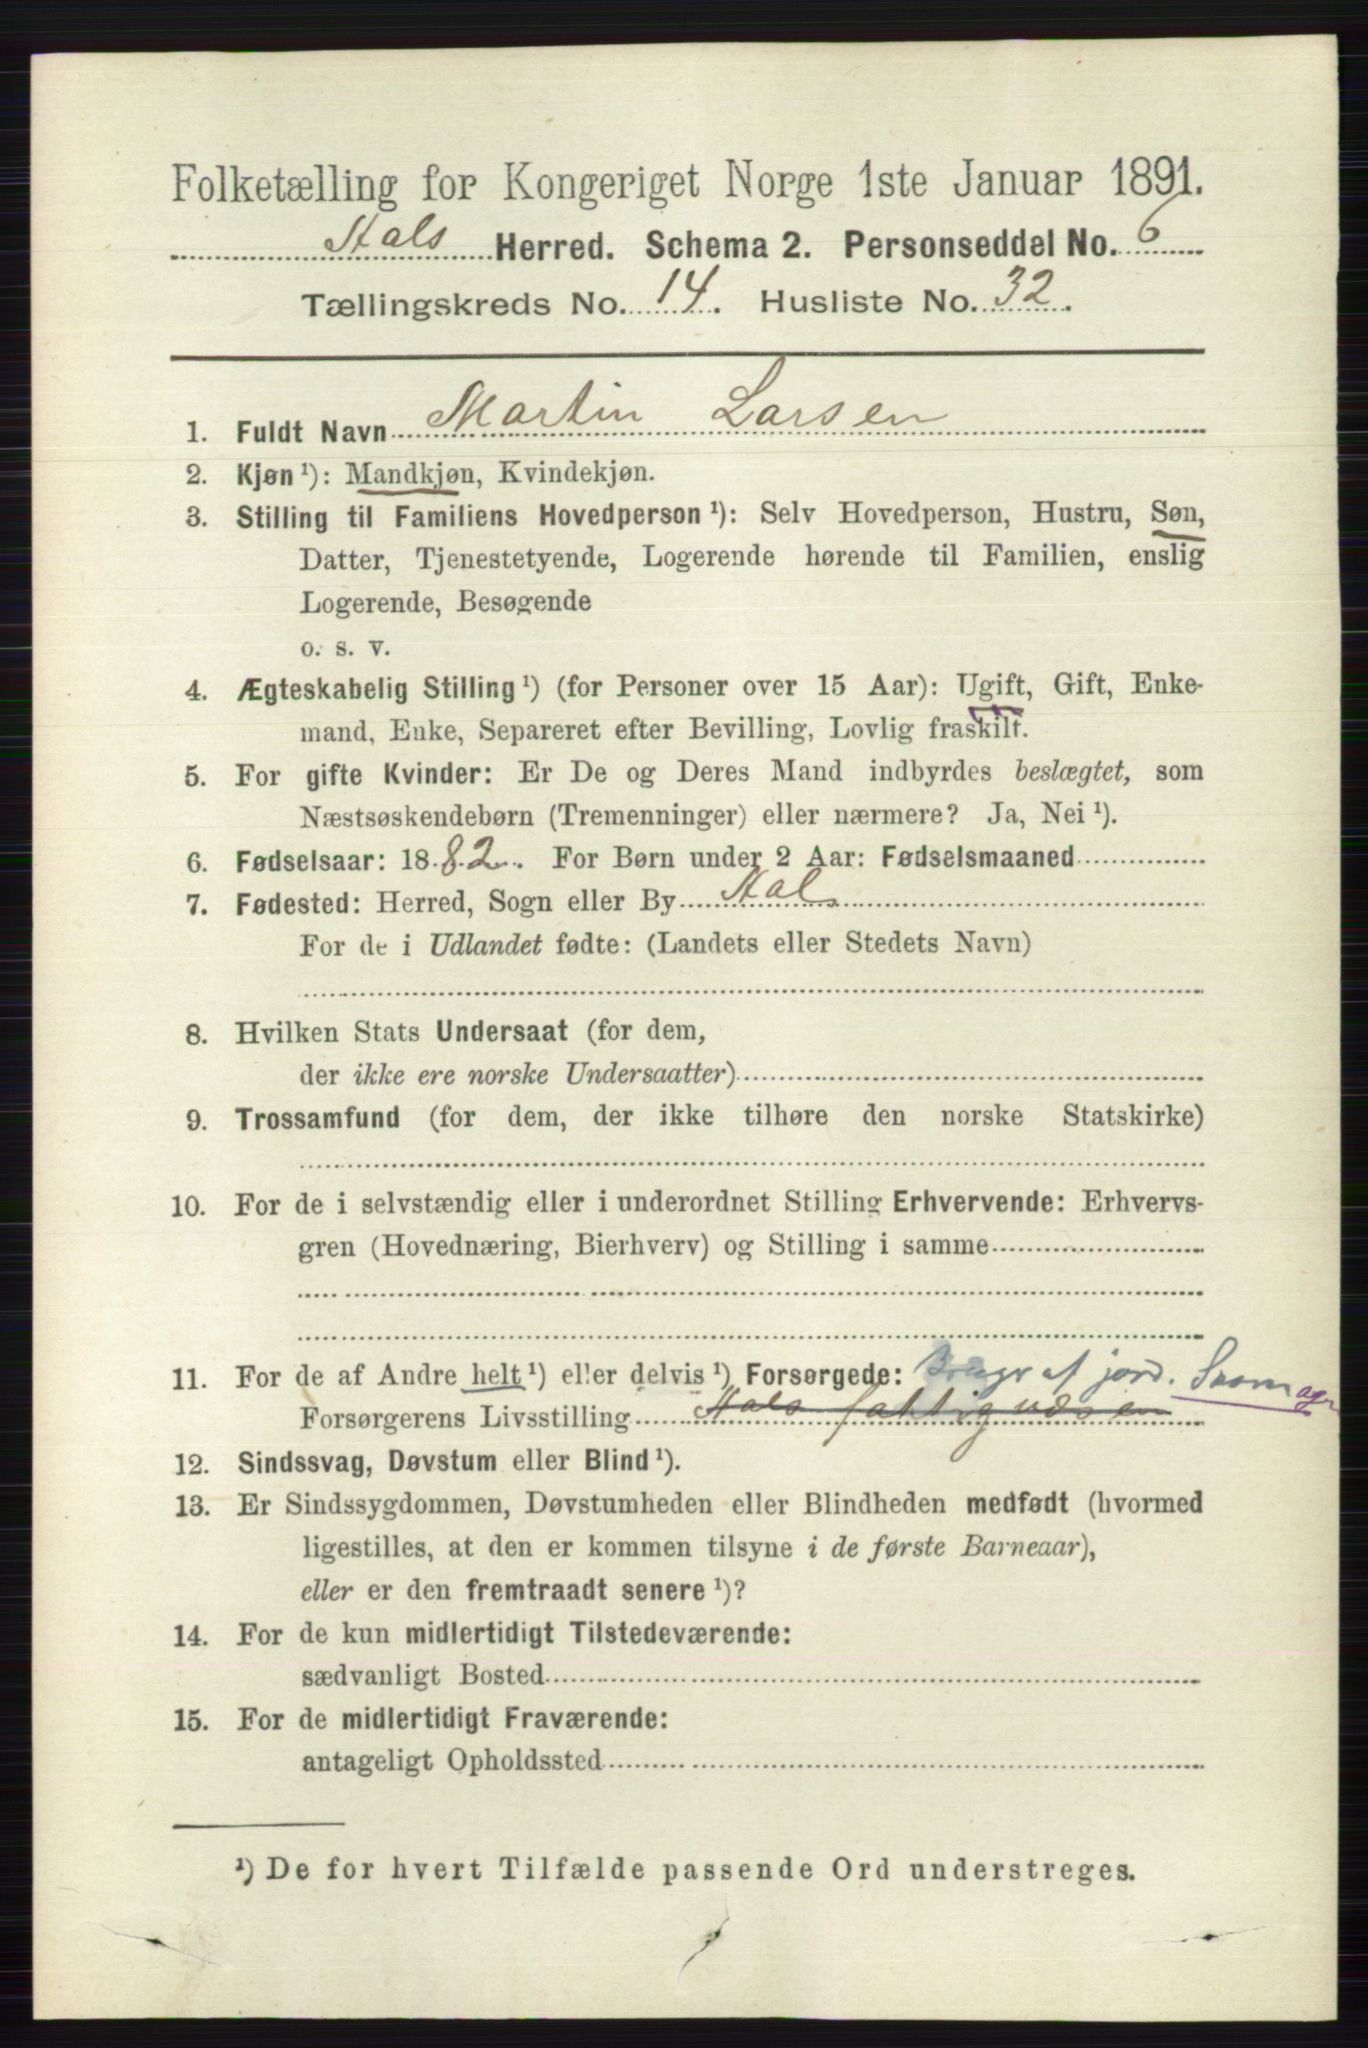 Folketælling for Kongeriget Norge 1ste Januar 1891.
Hals Herred. Schema 2. Personseddel No. 6
Tællingskreds No. 14. Husliste No. 32.
1. Fuldt Navn Martin Larsen
2. Kjøn ¹): Mandkjøn, Kvindekjøn.
3. Stilling til Familiens Hovedperson ¹): Selv Hovedperson, Hustru, Søn,
Datter, Tjenestetyende, Logerende hørende til Familien, enslig
Logerende, Besøgende
o. s. v.
4. Ægteskabelig Stilling ¹) (for Personer over 15 Aar): Ugift, Gift, Enke-
mand, Enke, Separeret efter Bevilling, Lovlig fraskilt.
5. For gifte Kvinder: Er De og Deres Mand indbyrdes beslægtet, som
Næstsøskendebørn (Tremenninger) eller nærmere? Ja, Nei ¹).
6. Fødselsaar: 1882. For Børn under 2 Aar: Fødselsmaaned
7. Fødested: Herred, Sogn eller By Hals
For de i Udlandet fødte: (Landets eller Stedets Navn)
8. Hvilken Stats Undersaat (for dem,
der ikke ere norske Undersaatter)
9. Trossamfund (for dem, der ikke tilhøre den norske Statskirke)
10. For de i selvstændig eller i underordnet Stilling Erhvervende: Erhvervs-
gren (Hovednæring, Bierhverv) og Stilling i samme
11. For de af Andre helt ¹) eller delvis ¹) Forsørgede: Bruger af jord.
Forsørgerens Livsstilling Hals
12. Sindssvag, Døvstum eller Blind ¹).
13. Er Sindssygdommen, Døvstumheden eller Blindheden medfødt (hvormed
ligestilles, at den er kommen tilsyne i de første Barneaar),
eller er den fremtraadt senere ¹)?
14. For de kun midlertidigt Tilstedeværende:
sædvanligt Bosted
15. For de midlertidigt Fraværende:
antageligt Opholdssted
¹) De for hvert Tilfælde passende Ord understreges.